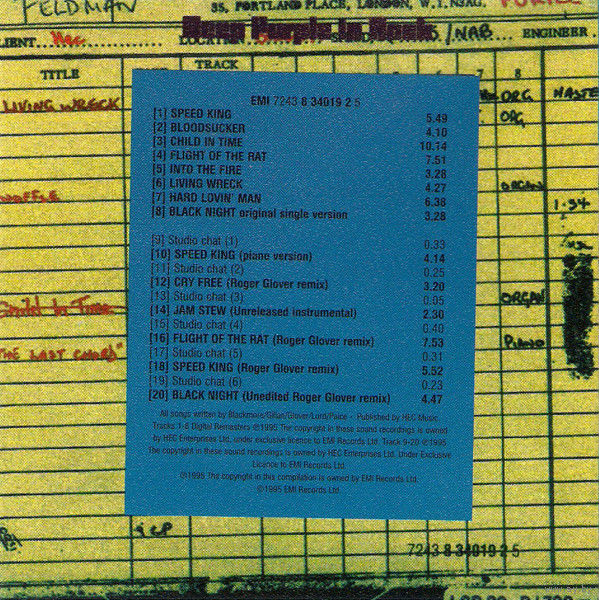 FELDMAN
35, PORTLAND PLACE, LONDON, W.1.
Deep Purple in Rock
LOCATION
/NAB
ENGINEER
TITLE
TRACK
7
8
LIVING WRECK
ORG
ORG
EMI 7243 8 34019 2 5
[1] SPEED KING 5.49
[2] BLOODSUCKER 4.10
[3] CHILD IN TIME 10.14
[4] FLIGHT OF THE RAT 7.51
[5] INTO THE FIRE 3.28
[6] LIVING WRECK 4.27
[7] HARD LOVIN' MAN 6.38
[8] BLACK NIGHT original single version 3.28
ORGAN
1.34
[9] Studio chat (1) 0.33
[10] SPEED KING (piane version) 4.14
[11] Studio chat (2) 0.25
[12] CRY FREE (Roger Glover remix) 3.20
[13] Studio chat (3) 0.05
[14] JAM STEW (Unreleased instrumental) 2.30
[15] Studio chat (4) 0.40
[16] FLIGHT OF THE RAT (Roger Glover remix) 7.53
[17] Studio chat (5) 0.31
[18] SPEED KING (Roger Glover remix) 5.52
[19] Studio chat (6) 0.23
[20] BLACK NIGHT (Unedited Roger Glover remix) 4.47
ORGAN
Child In Time
PIANO
"THE LAST CHORD"
All songs written by Blackmore/Gillan/Glover/Lord/Paice - Published by HEC Music
Tracks 1-8 Digital Remasters ℗1995 The copyright in these sound recordings is owned
by HEC Enterprises Ltd. under exclusive licence to EMI Records Ltd. Track 9-20 ℗1995
The copyright in these sound recordings is owned by HEC Enterprises Ltd. Under Exclusive
Licence to EMI Records Ltd.
℗1995 The copyright in this compilation is owned by EMI Records Ltd.
©1995 EMI Records Ltd.
7243 8 34019 2 5